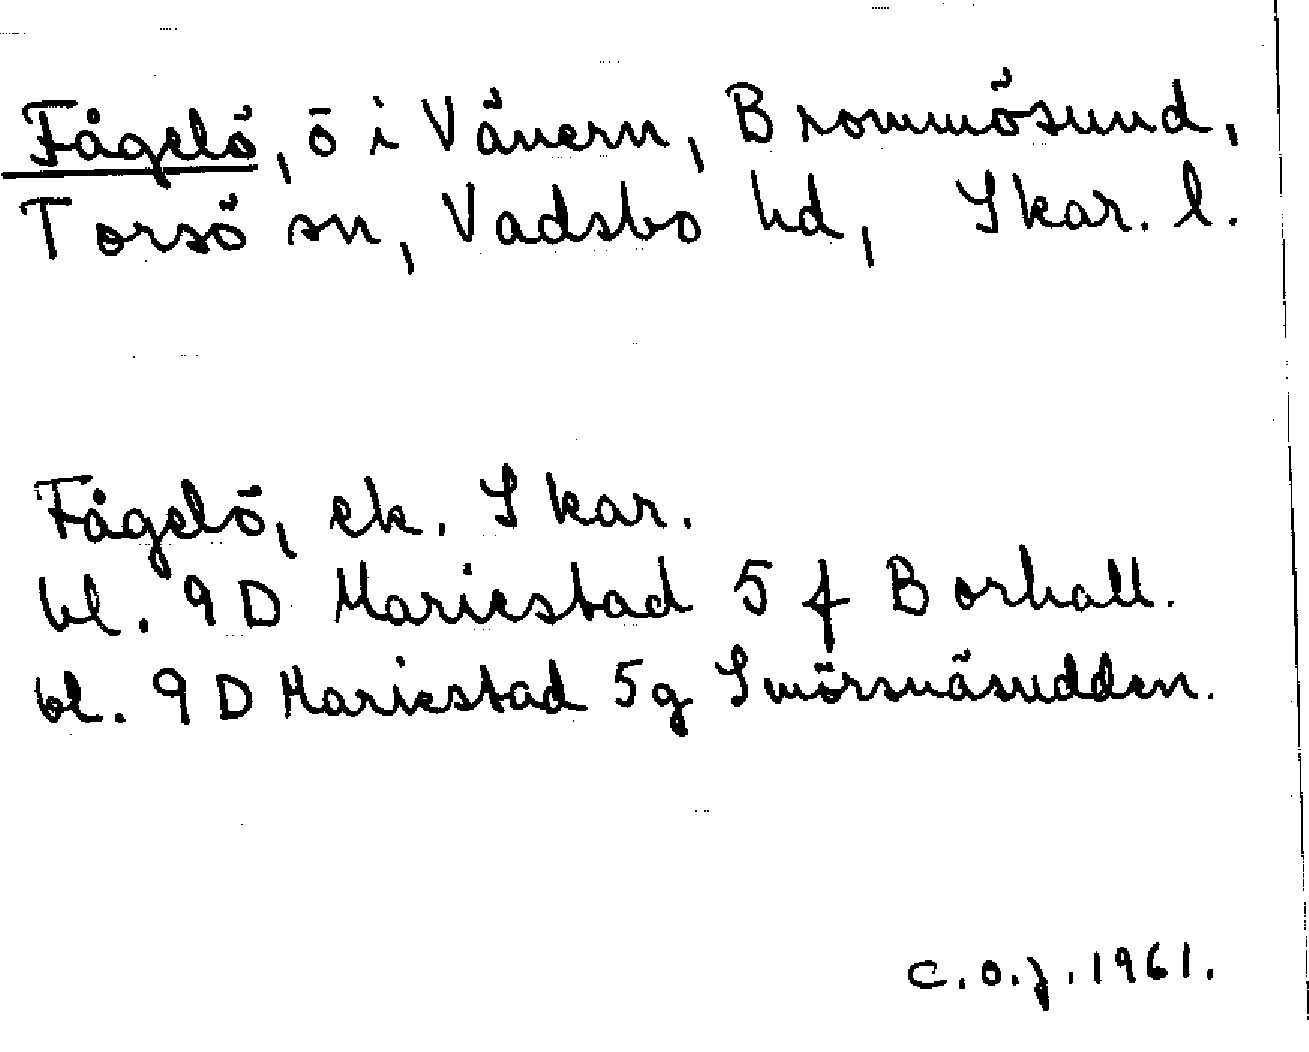 Fågelö, ö i Vänern, Brommösund,
Torsö sn, Vadsbo hd, Skar. l.
Fågelö, ek. Skar.
bl. 9D Mariestad 5 f Borhall.
bl. 9D Mariestad 5g Smörsnäsudden.
C.O.J. 1961.